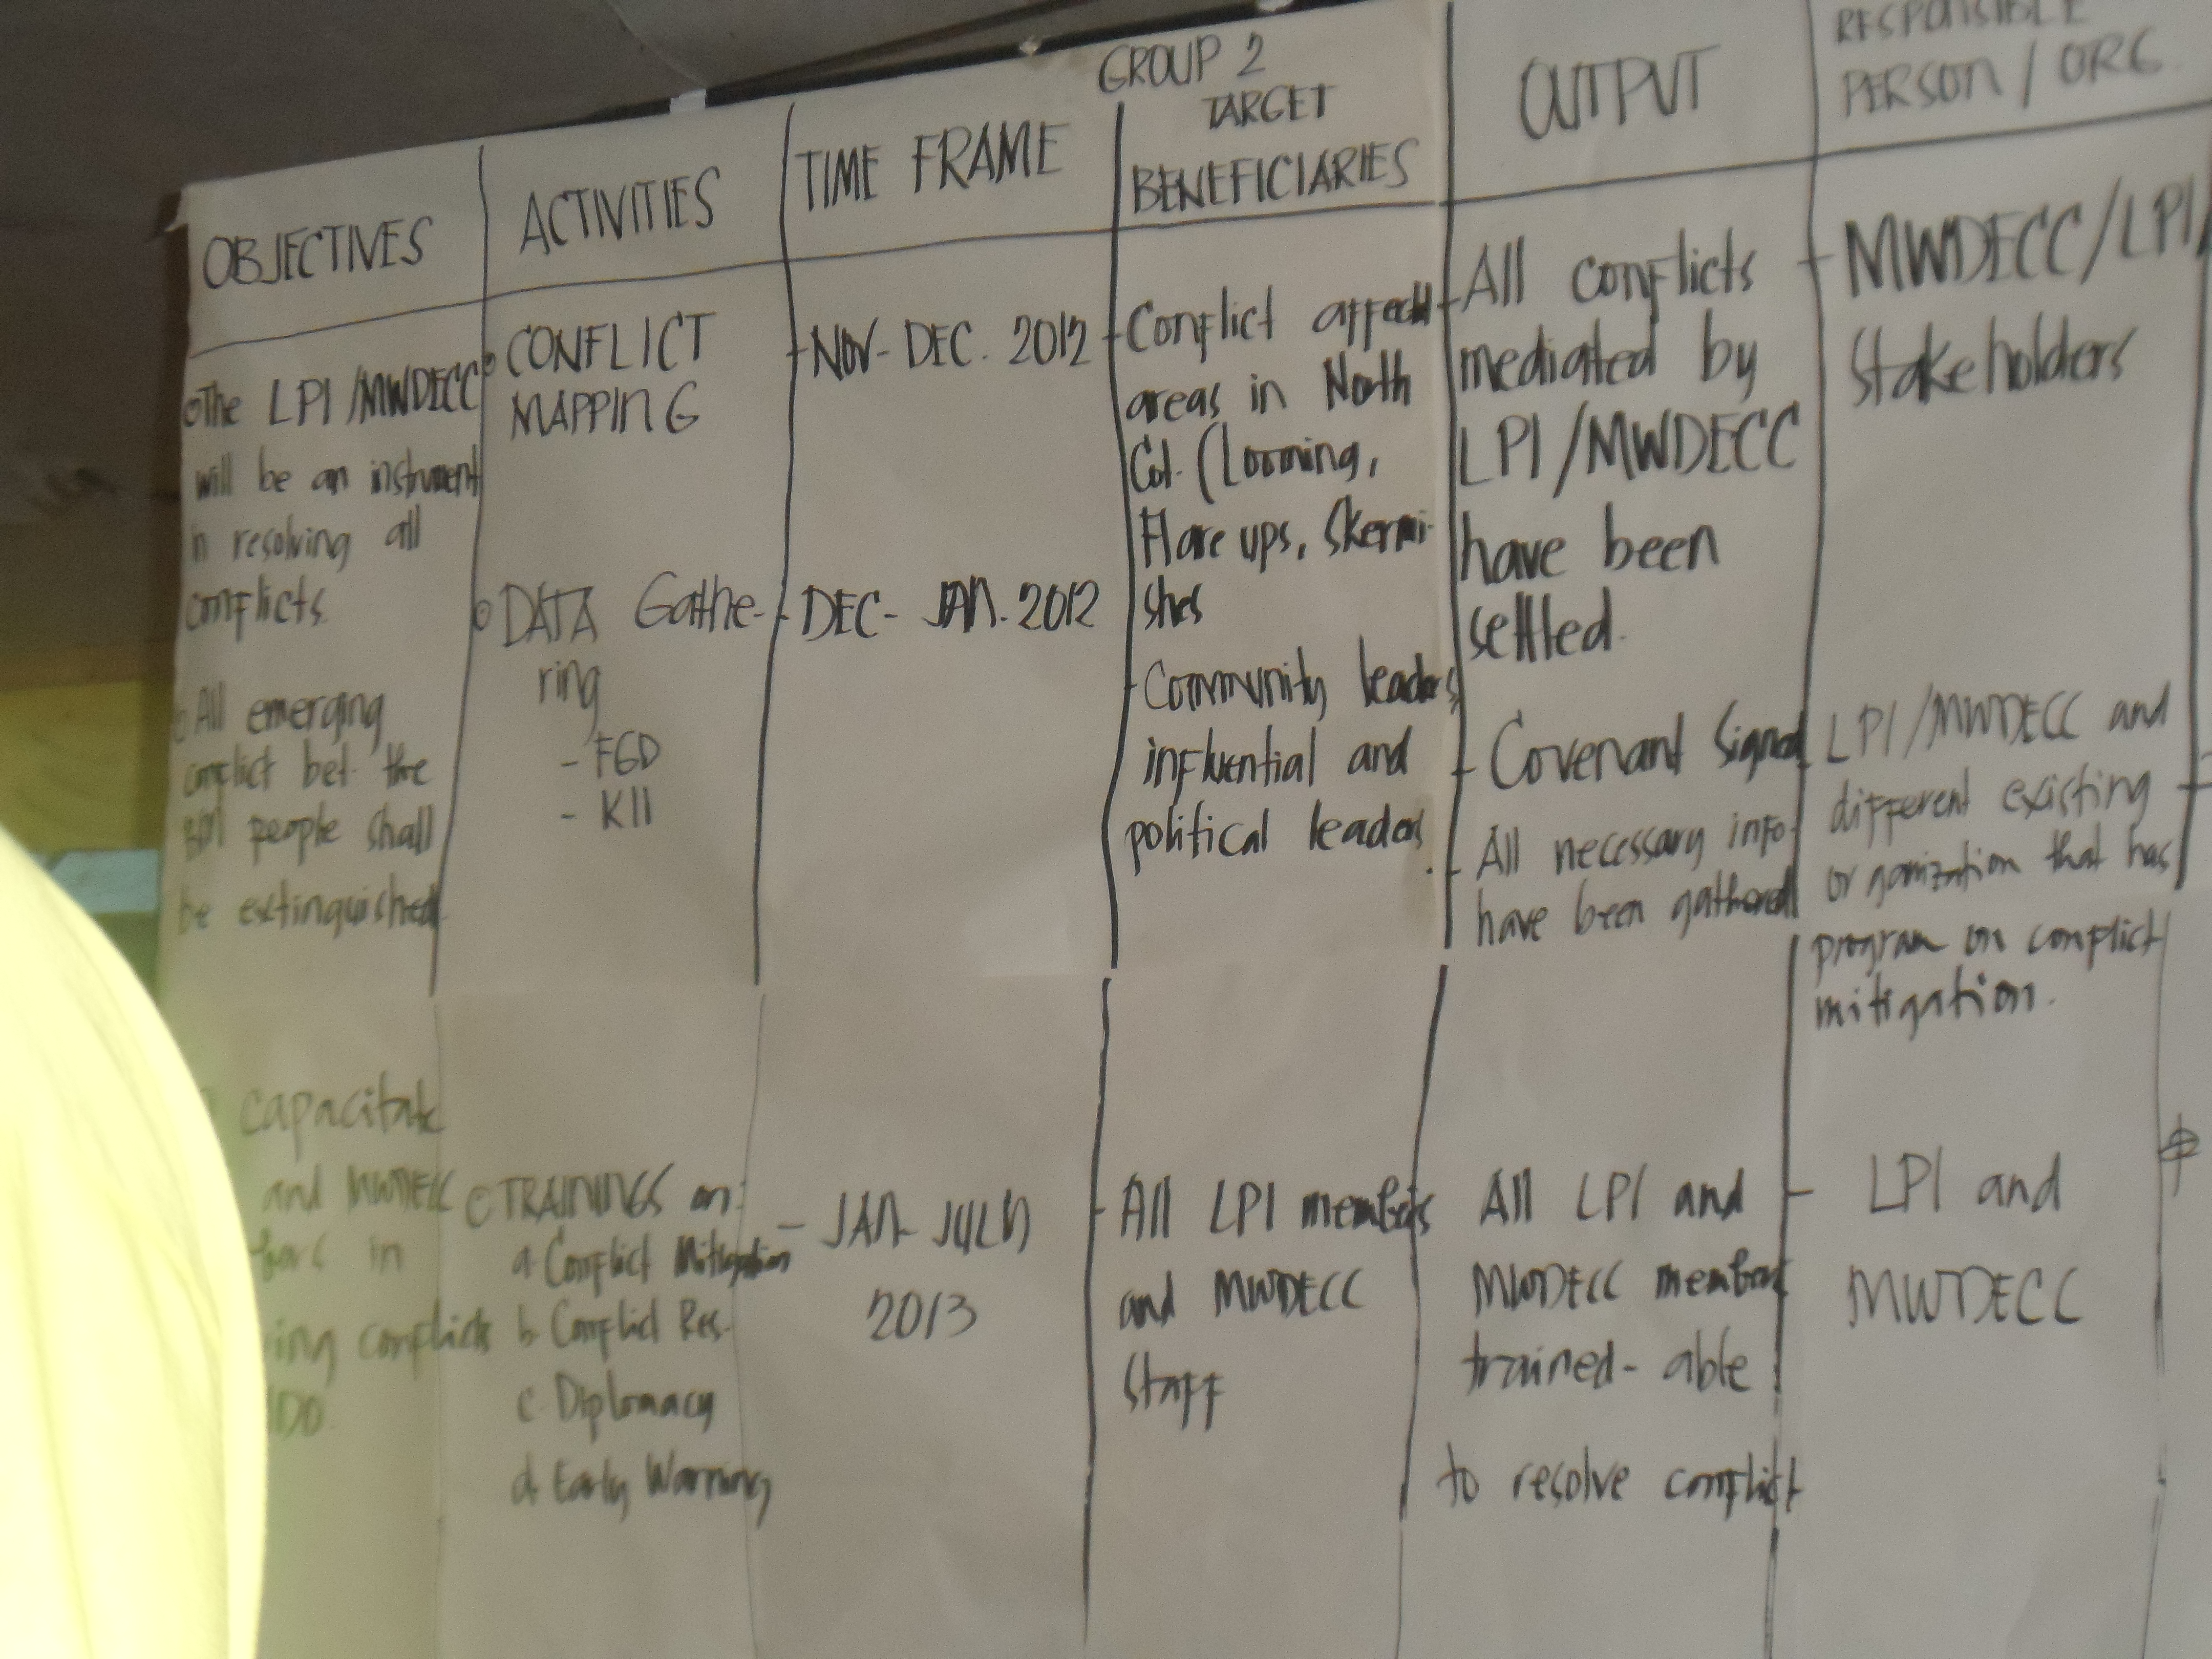 GROUP 2
OBJECTIVES
ACTIVITIES
TIME FRAME
TARGET
BENEFICIARIES
OUTPUT
RESPONSIBLE
PERSON / ORG.
The LPI /MWDECC
will be an instrument
in resolving all
conflicts.
All emerging
conflict bet. the
people shall
be extinguished.
capacitate
and MWDECC
in
conflicts
CONFLICT
MAPPING
DATA Gathe-
ring
- FGD
- KII
TRAININGS on:
a. Conflict Mitigation
b. Conflict Res.
c. Diplomacy
d. Early Warning
- NOV- DEC. 2012
- DEC- JAN. 2012
- JAN- JULY
2013
- Conflict affectd
areas in North
Cot. (Looming,
Flare ups, Skermi-
shes
- Community leaders,
influential and
political leaders
- All LPI members
and MWDECC
Staff
- All conflicts
mediated by
LPI /MWDECC
have been
settled.
- Covenant Signed
- All necessary info-
have been gathered
All LPI and
MWDECC members
trained- able
to resolve conflict
- MWDECC/LPI/
Stakeholders
LPI /MWDECC and
different existing
organization that has
program on conflict
mitigation.
- LPI and
MWDECC